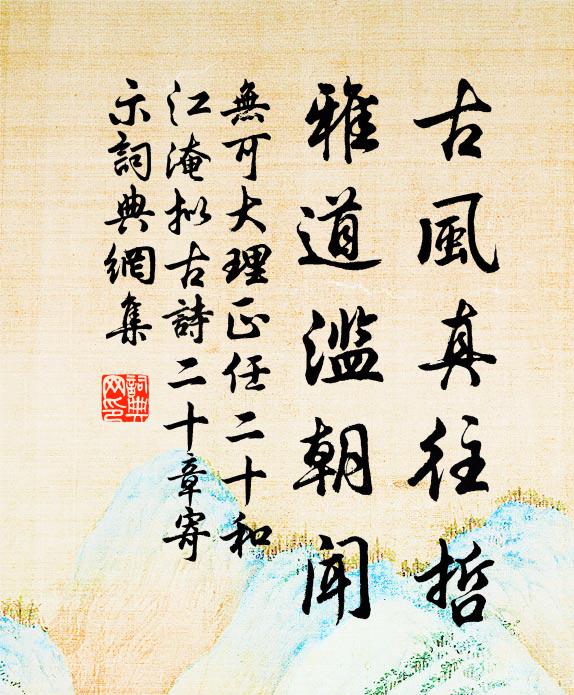 古風真往哲
雅道濫朝聞
無可大理正任二十和
江淹拟古詩二十章寄
示詞典網集
詞典
网印